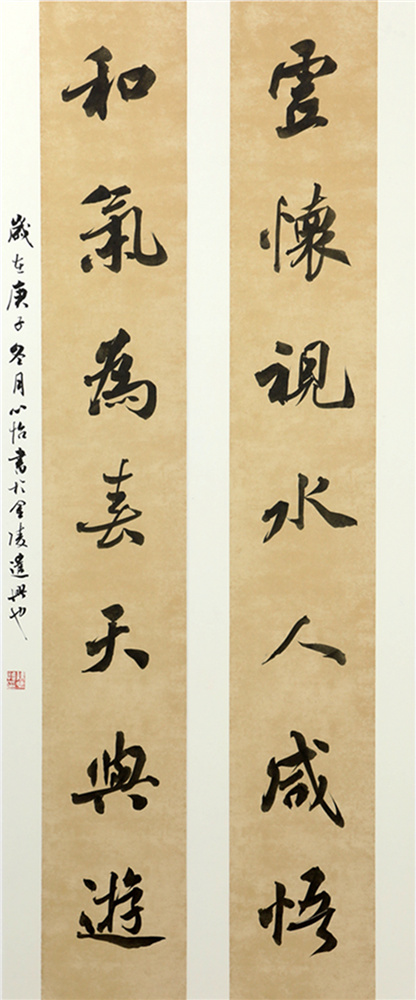 虛懷視水人咸悟
和氣為春天與遊
歲在庚子冬月心怡書於金陵遣興也